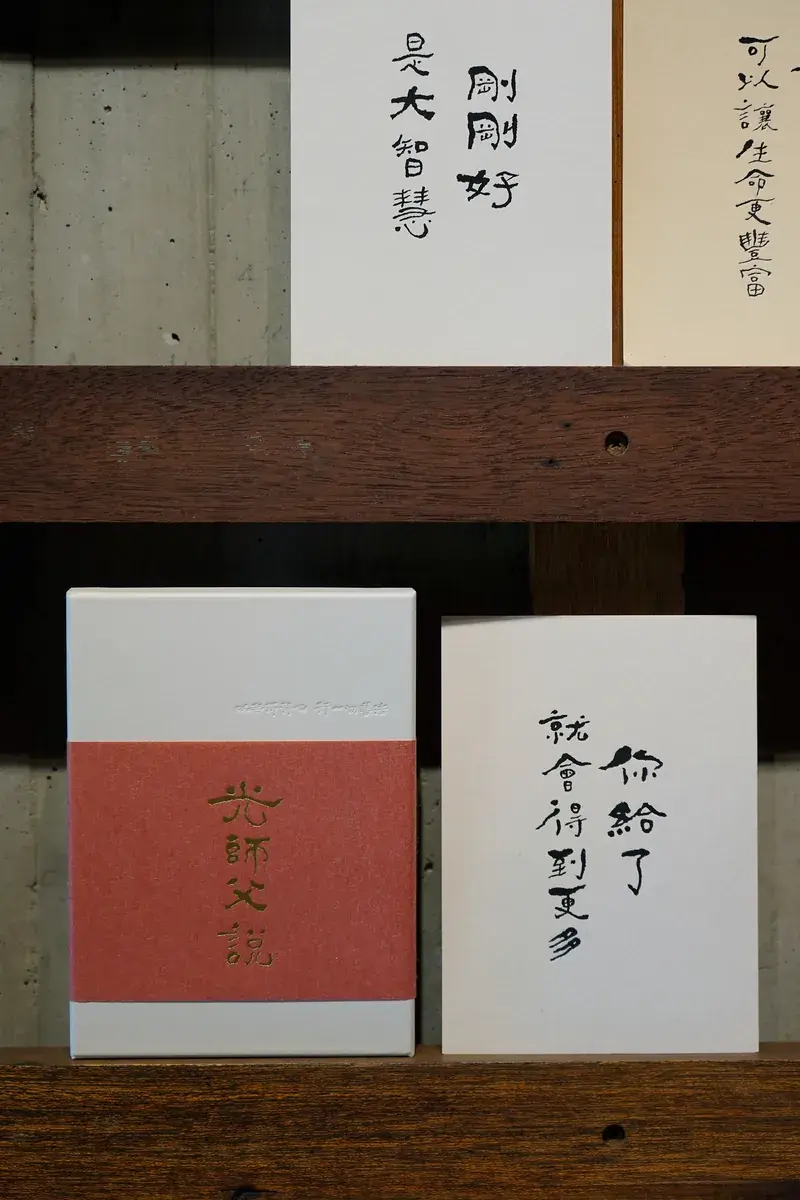 剛剛好
是大智慧
可以讓生命更豐富
光師父說
你給了
就會得到更多